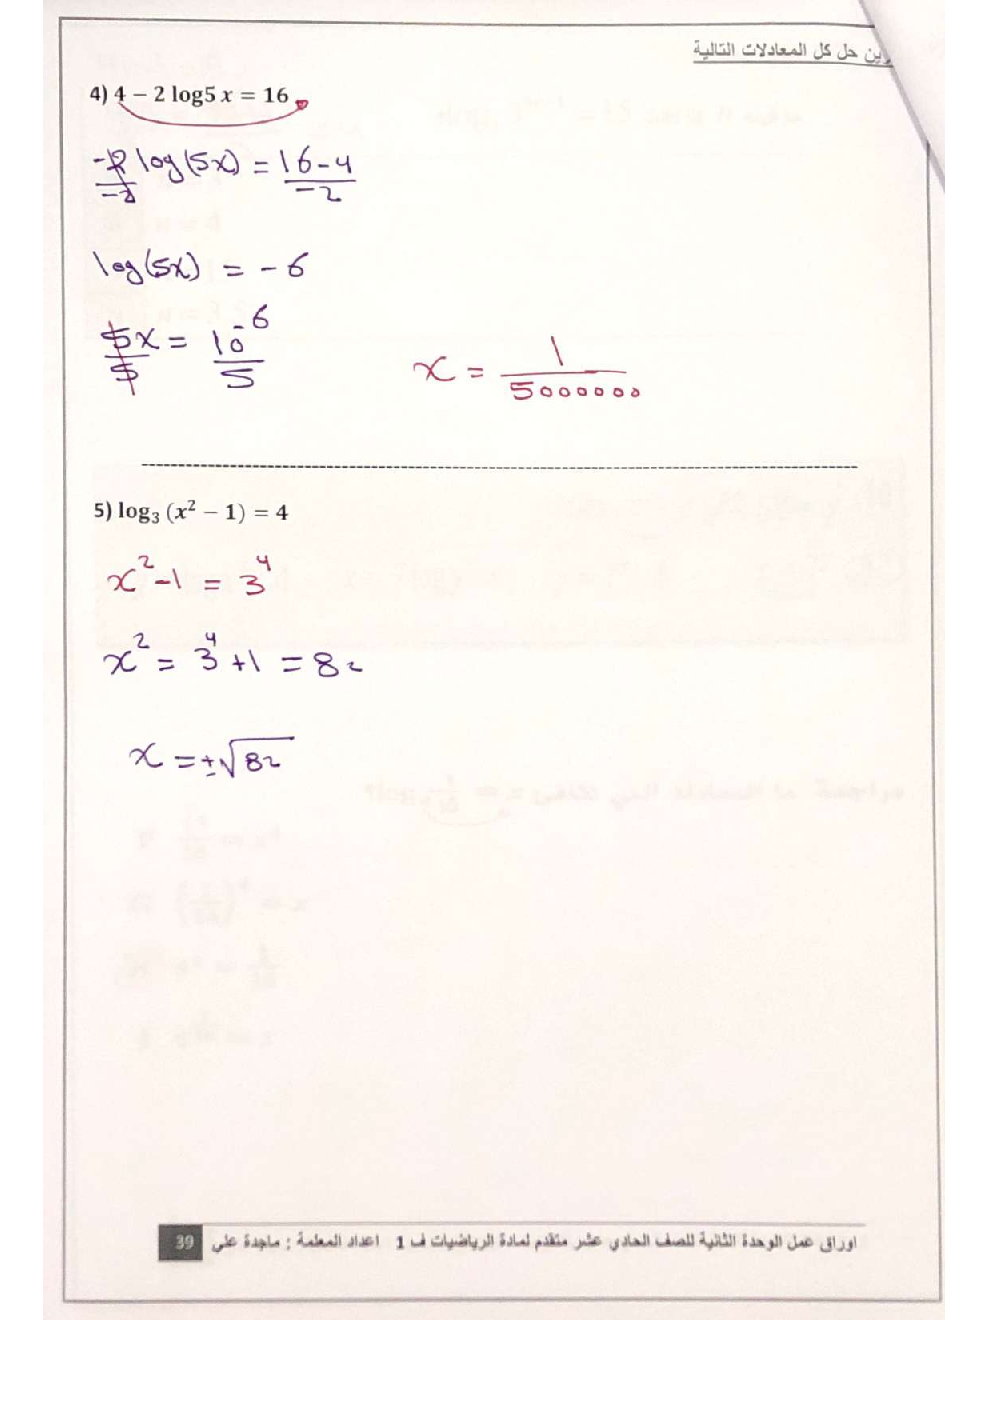 حل كل المعادلات التالية
4) 4 − 2 log5 x = 16
-2 log(5x) = 16-4
-2 -2
log(5x) = -6
5x = 10^-6
5 5
x = 1
5000000
5) log₃ (x² − 1) = 4
x² - 1 = 3⁴
x² = 3⁴ + 1 = 82
x = ±√82
اوراق عمل الوحدة الثانية للصف الحادي عشر متقدم لمادة الرياضيات ف 1 اعداد المعلمة : ماجدة علي 39